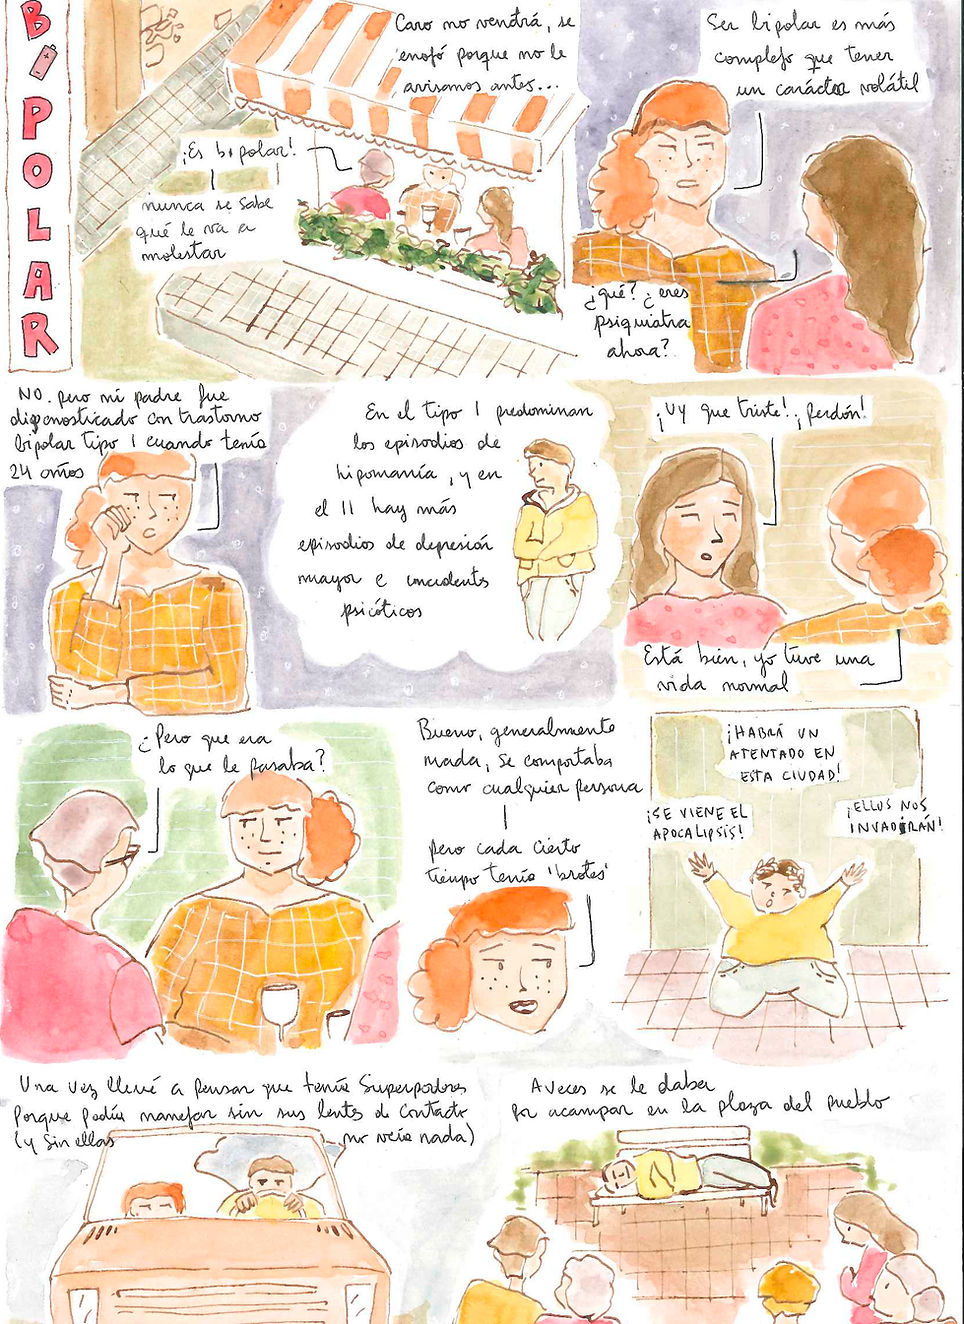 BIPOLAR
Caro no vendrá, se
enojó porque no le
avisamos antes...
¡Es bipolar!
nunca se sabe
qué le va a
molestar
Ser bipolar es más
complejo que tener
un carácter volátil
¿qué? ¿eres
psiquiatra
ahora?
NO. pero mi padre fue
diagnosticado con trastorno
bipolar tipo 1 cuando tenía
24 años
En el tipo 1 predominan
los episodios de
hipomanía, y en
el 11 hay más
episodios de depresión
mayor e incidentes
psicóticos
¡Uy que triste!¡perdón!
Está bien, yo tuve una
vida normal
¿Pero que era
lo que le pasaba?
Bueno, generalmente
nada, se comportaba
como cualquier persona
pero cada cierto
tiempo tenía 'brotes'
¡HABRÁ UN
ATENTADO EN
ESTA CIUDAD!
¡SE VIENE EL
APOCALIPSIS!
¡ELLOS NOS
INVADIRÁN!
Una vez llevé a pensar que tenía Superpoderes
porque podía manejar sin sus lentes de contacto
(y sin ellas no veía nada)
A veces se le daba
por acampar en la plaza del pueblo